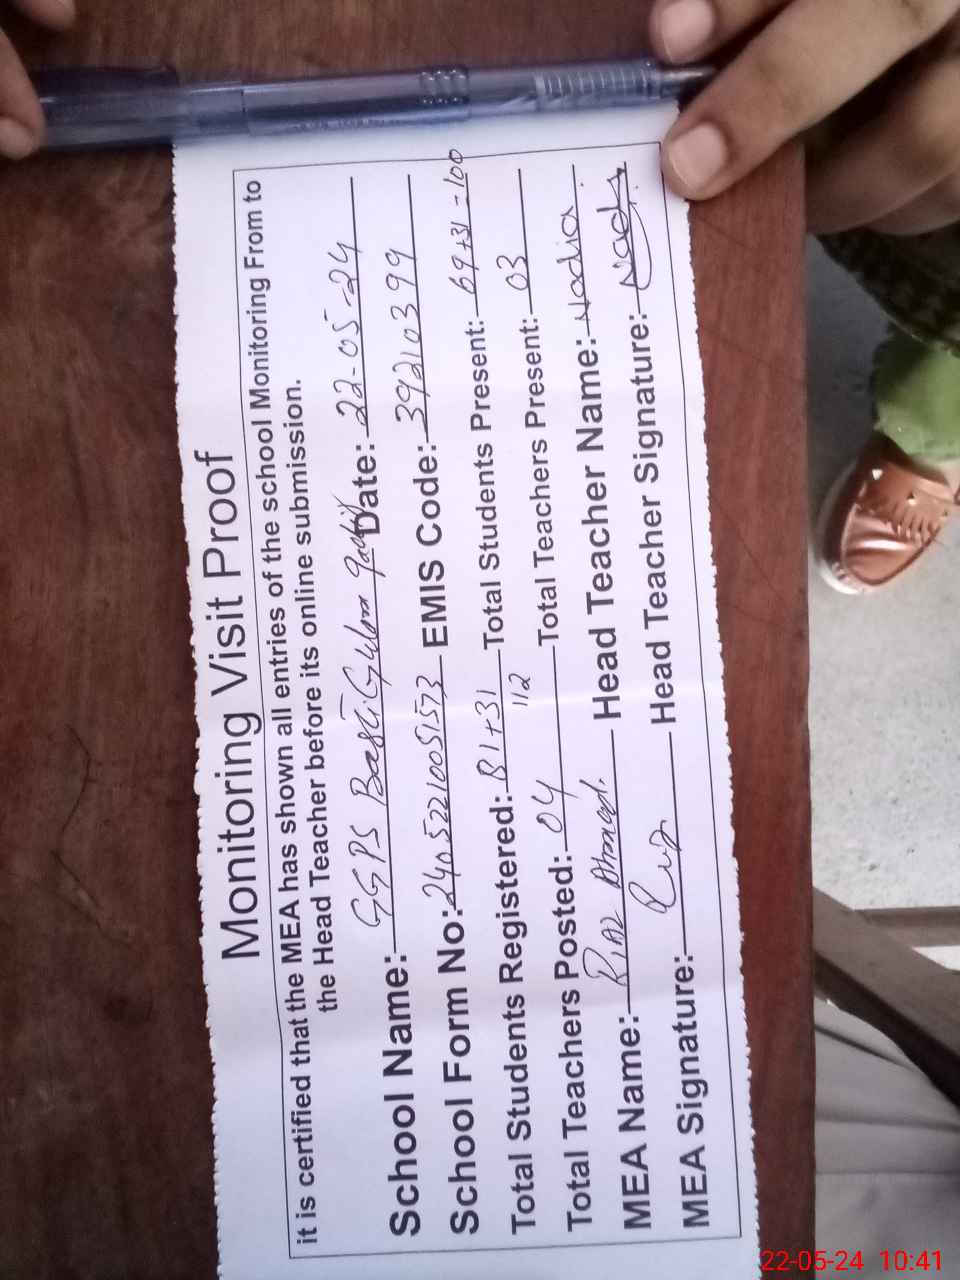 Monitoring Visit Proof
it is certified that the MEA has shown all entries of the school Monitoring From to
the Head Teacher before its online submission.
School Name: GGPS Basti Ghulam Qadir Date: 22-05-24
School Form No: 24052210051573 EMIS Code: 39210399
Total Students Registered: 81+31 Total Students Present: 69+31=100
112
Total Teachers Posted: 04 Total Teachers Present: 03
MEA Name: Riaz Head Teacher Name: Nadia
MEA Signature: Riaz Head Teacher Signature: Nadia
22-05-24 10:41